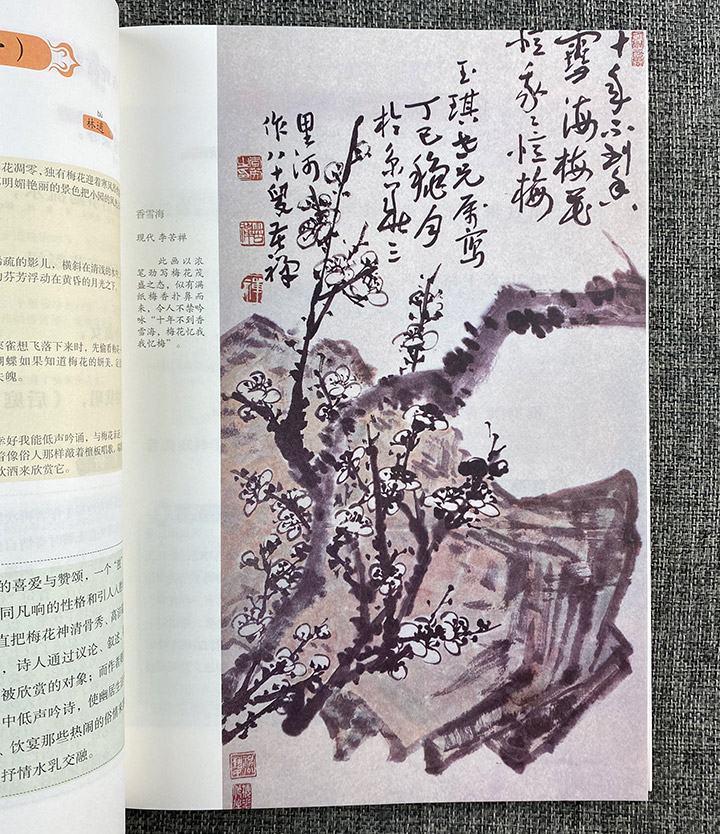 林逋
花凋零，独有梅花迎着寒风
明媚艳丽的景色把小园的风
疏的影儿，横斜在清浅的水中
芬芳浮动在黄昏的月光之下
雀想飞落下来时，先偷看梅
蝴蝶如果知道梅花的妍美，
失魄。
幸好我能低声吟诵，与梅花
着像俗人那样敲着檀板唱歌，
饮酒来欣赏它。
的喜爱与赞颂，一个
同凡响的性格和引人
直把梅花神清骨秀、高
，诗人通过议论、叙述、
被欣赏的对象；而作者
中低声吟诗，使幽居生活
、饮宴那些热闹的俗情
抒情水乳交融。
香雪海
现代 李苦禅
此画以浓
笔劲写梅花茂
盛之态，似有满
纸梅香扑鼻而
来，令人不禁吟
咏“十年不到香
雪海，梅花忆我
我忆梅”。
十年不到香
雪海梅花
忆我我忆梅
玉琪世兄属写
丁巳秋月
于京华三
里河
作八十叟苦禅